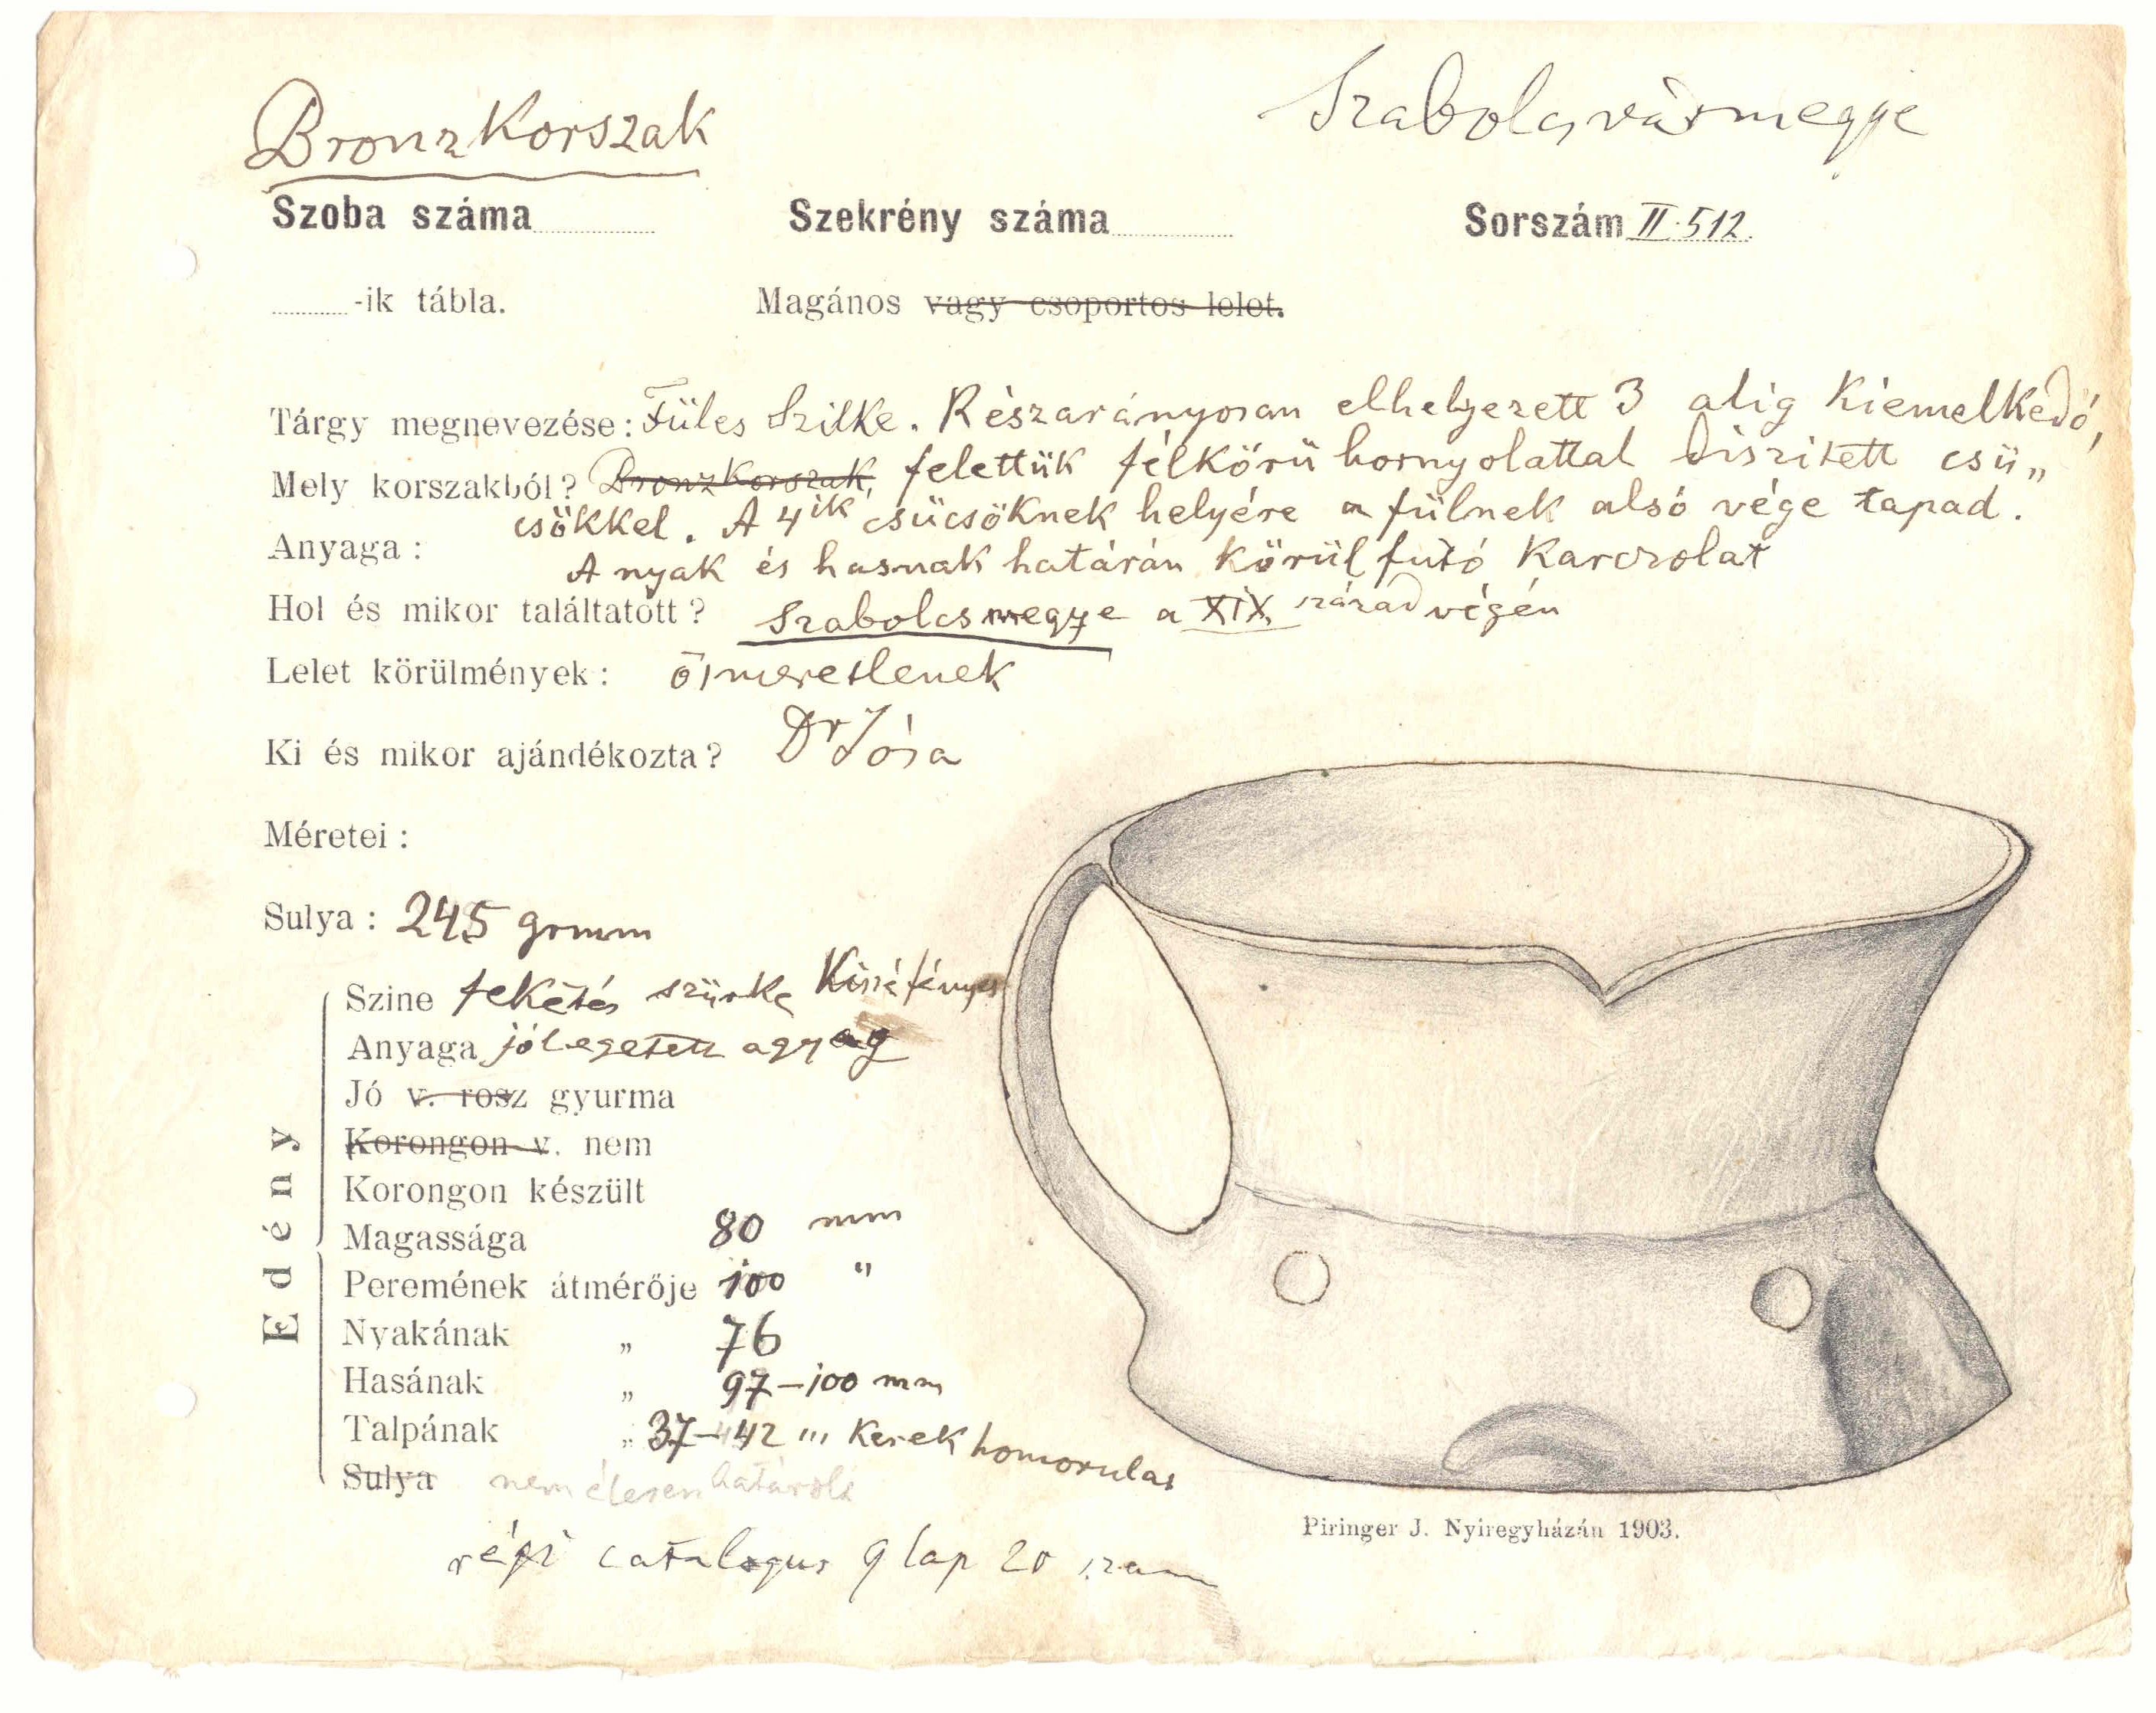 Bronzkorszak
Szabolcsvármegye
Szoba száma
Szekrény száma
Sorszám II.512.
-ik tábla.
Magános vagy csoportos lelet.
Tárgy megnevezése: Füles Szilke. Részarányosan elhelyezett 3 alig kiemelkedő,
Mely korszakból? Bronzkorszak, felettük félkörü hornyolattal diszitett csü„
csökkel. A 4ik csücsöknek helyére a fülnek alsó vége tapad.
Anyaga:
A nyak és hasnak határán körül futó karczolat
Hol és mikor találtatott? Szabolcsmegye a XIX század végén
Lelet körülmények: ösmeretlenek
Ki és mikor ajándékozta? Dr Jósa
Méretei:
Sulya: 245 gramm
Edény
Szine feketés szürke Kissé fényes
Anyaga jól egetett agyag
Jó v. rosz gyurma
Korongon v. nem
Korongon készült
Magassága 80 mm
Peremének átmérője 100 "
Nyakának „ 76
Hasának „ 97–100 mm
Talpának „ 37–42 "' Kerek homorulas
Sulya nem élesen határolt
régi catalogus 9 lap 20 szam
Piringer J. Nyiregyházán 1903.